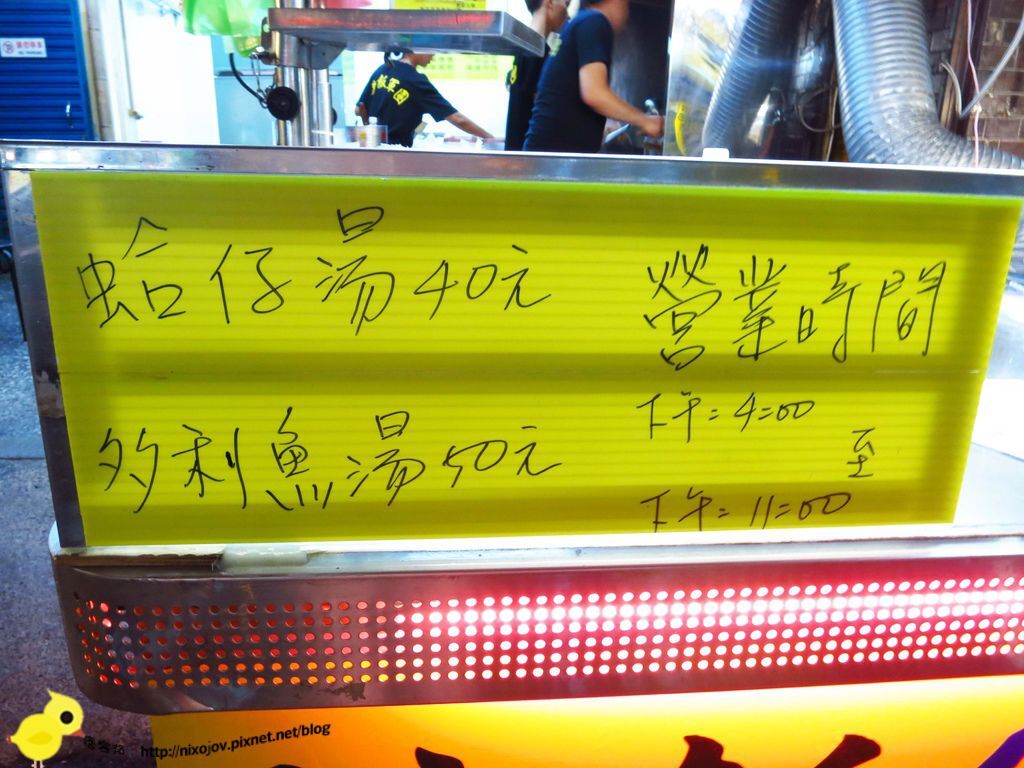 蛤仔湯40元
多利魚湯50元
營業時間
下午:4:00
至
下午:11:00
http://nixojov.pixnet.net/blog